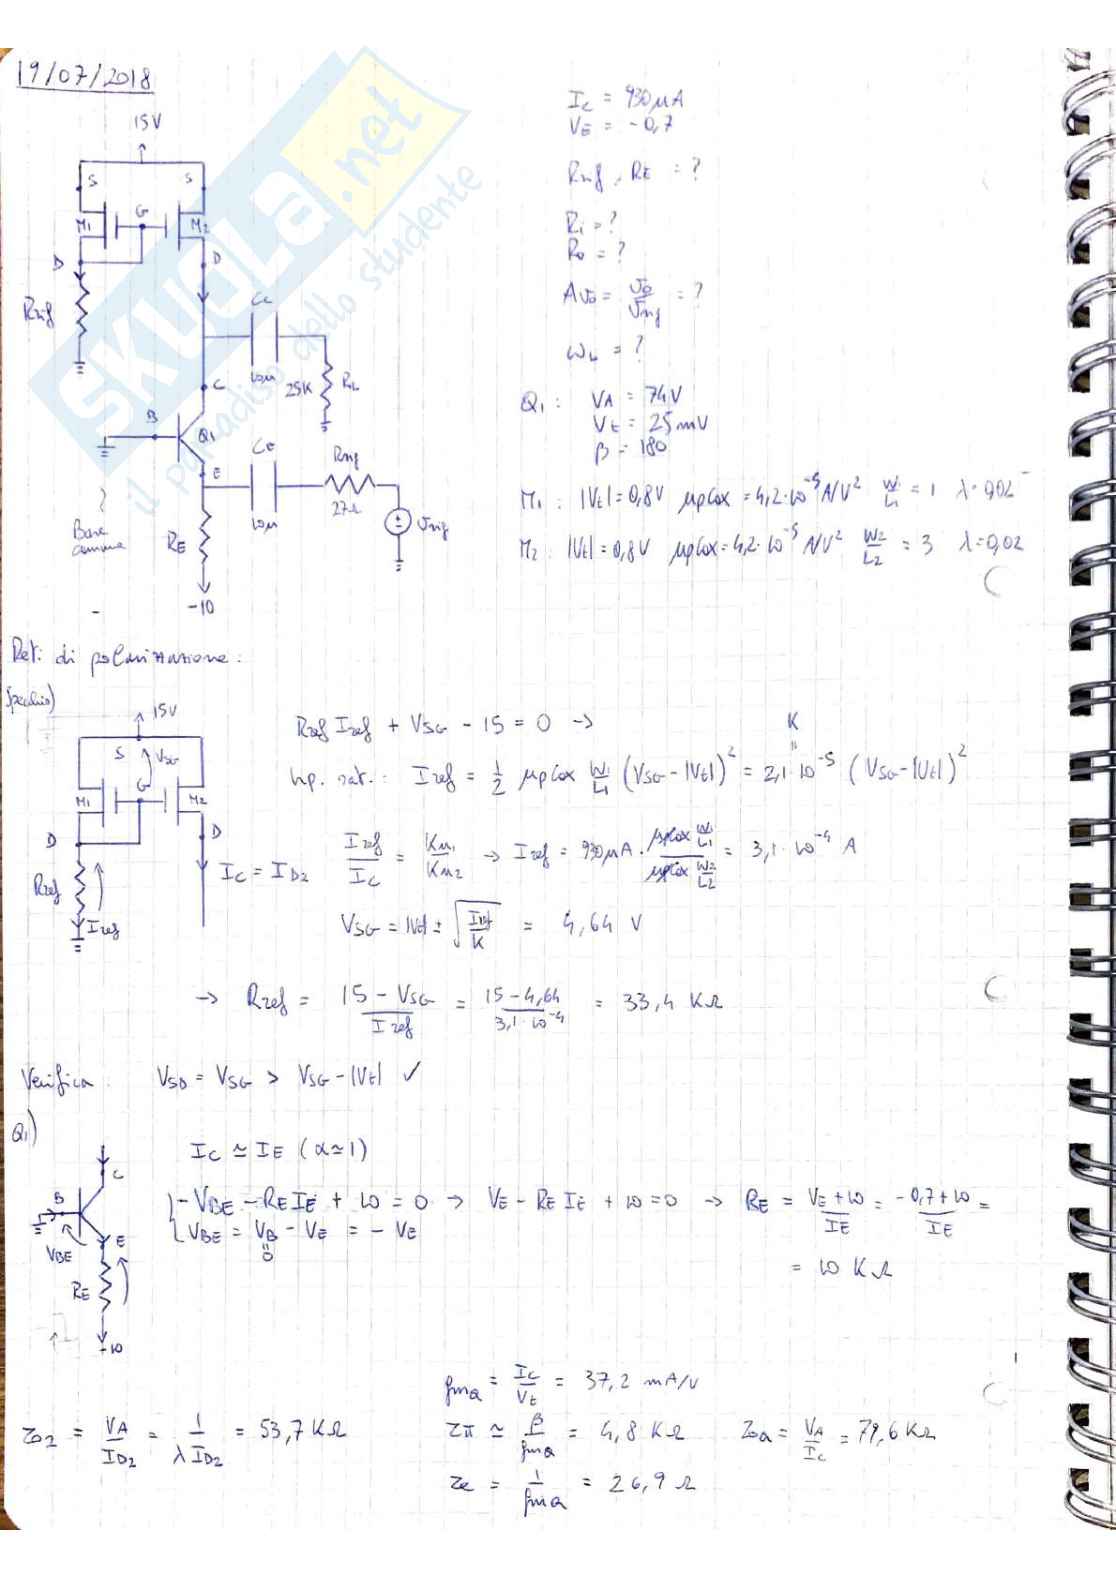 19/07/2018
15V
S S
G
M1 M2
D D
Rref
Cc
10µ
25K RL
C
B Q1
E
CE
10µ
Rsig
27Ω
vsig
RE
-10
Base
comune
Ic = 930µA
VE = -0,7
Rref, RE = ?
Ri = ?
Ro = ?
Avo = vo/vsig = ?
ωL = ?
Q1: VA = 74V
Vt = 25mV
β = 180
M1: |Vt| = 0,8V µpCox = 4,2·10^-5 A/V² W1/L1 = 1 λ=0,02
M2: |Vt| = 0,8V µpCox = 4,2·10^-5 A/V² W2/L2 = 3 λ=0,02
SKUOLA.net
il paradiso dello studente
Reti di polarizzazione:
(specchio)
15V
S VSG
G
M1 M2
D D
Rref
Iref
Rref Iref + VSG - 15 = 0 →
K
hp. sat.: Iref = 1/2 µpCox W1/L1 (VSG-|Vt|)² = 2,1·10^-5 (VSG-|Vt|)²
IC = ID2 Iref/Ic = Km1/Km2 → Iref = 930µA · (µpCox W1/L1)/(µpCox W2/L2) = 3,1·10^-4 A
VSG = |Vt| ± √(Iref/K) = 4,64 V
→ Rref = (15 - VSG)/Iref = (15-4,64)/(3,1·10^-4) = 33,4 KΩ
Verifica: VSD = VSG > VSG-|Vt| ✓
Q1)
C
B
VBE
E
RE
-10
IC ≃ IE (α≃1)
-VBE - RE IE + 10 = 0 → VE - RE IE + 10 = 0 → RE = (VE+10)/IE = (-0,7+10)/IE =
VBE = VB - VE = - VE
0
= 10 KΩ
gmQ = Ic/Vt = 37,2 mA/V
ro2 = VA/ID2 = 1/(λ ID2) = 53,7 KΩ rπ ≃ β/gmQ = 4,8 KΩ roQ = VA/Ic = 79,6 KΩ
re = 1/gmQ = 26,9 Ω